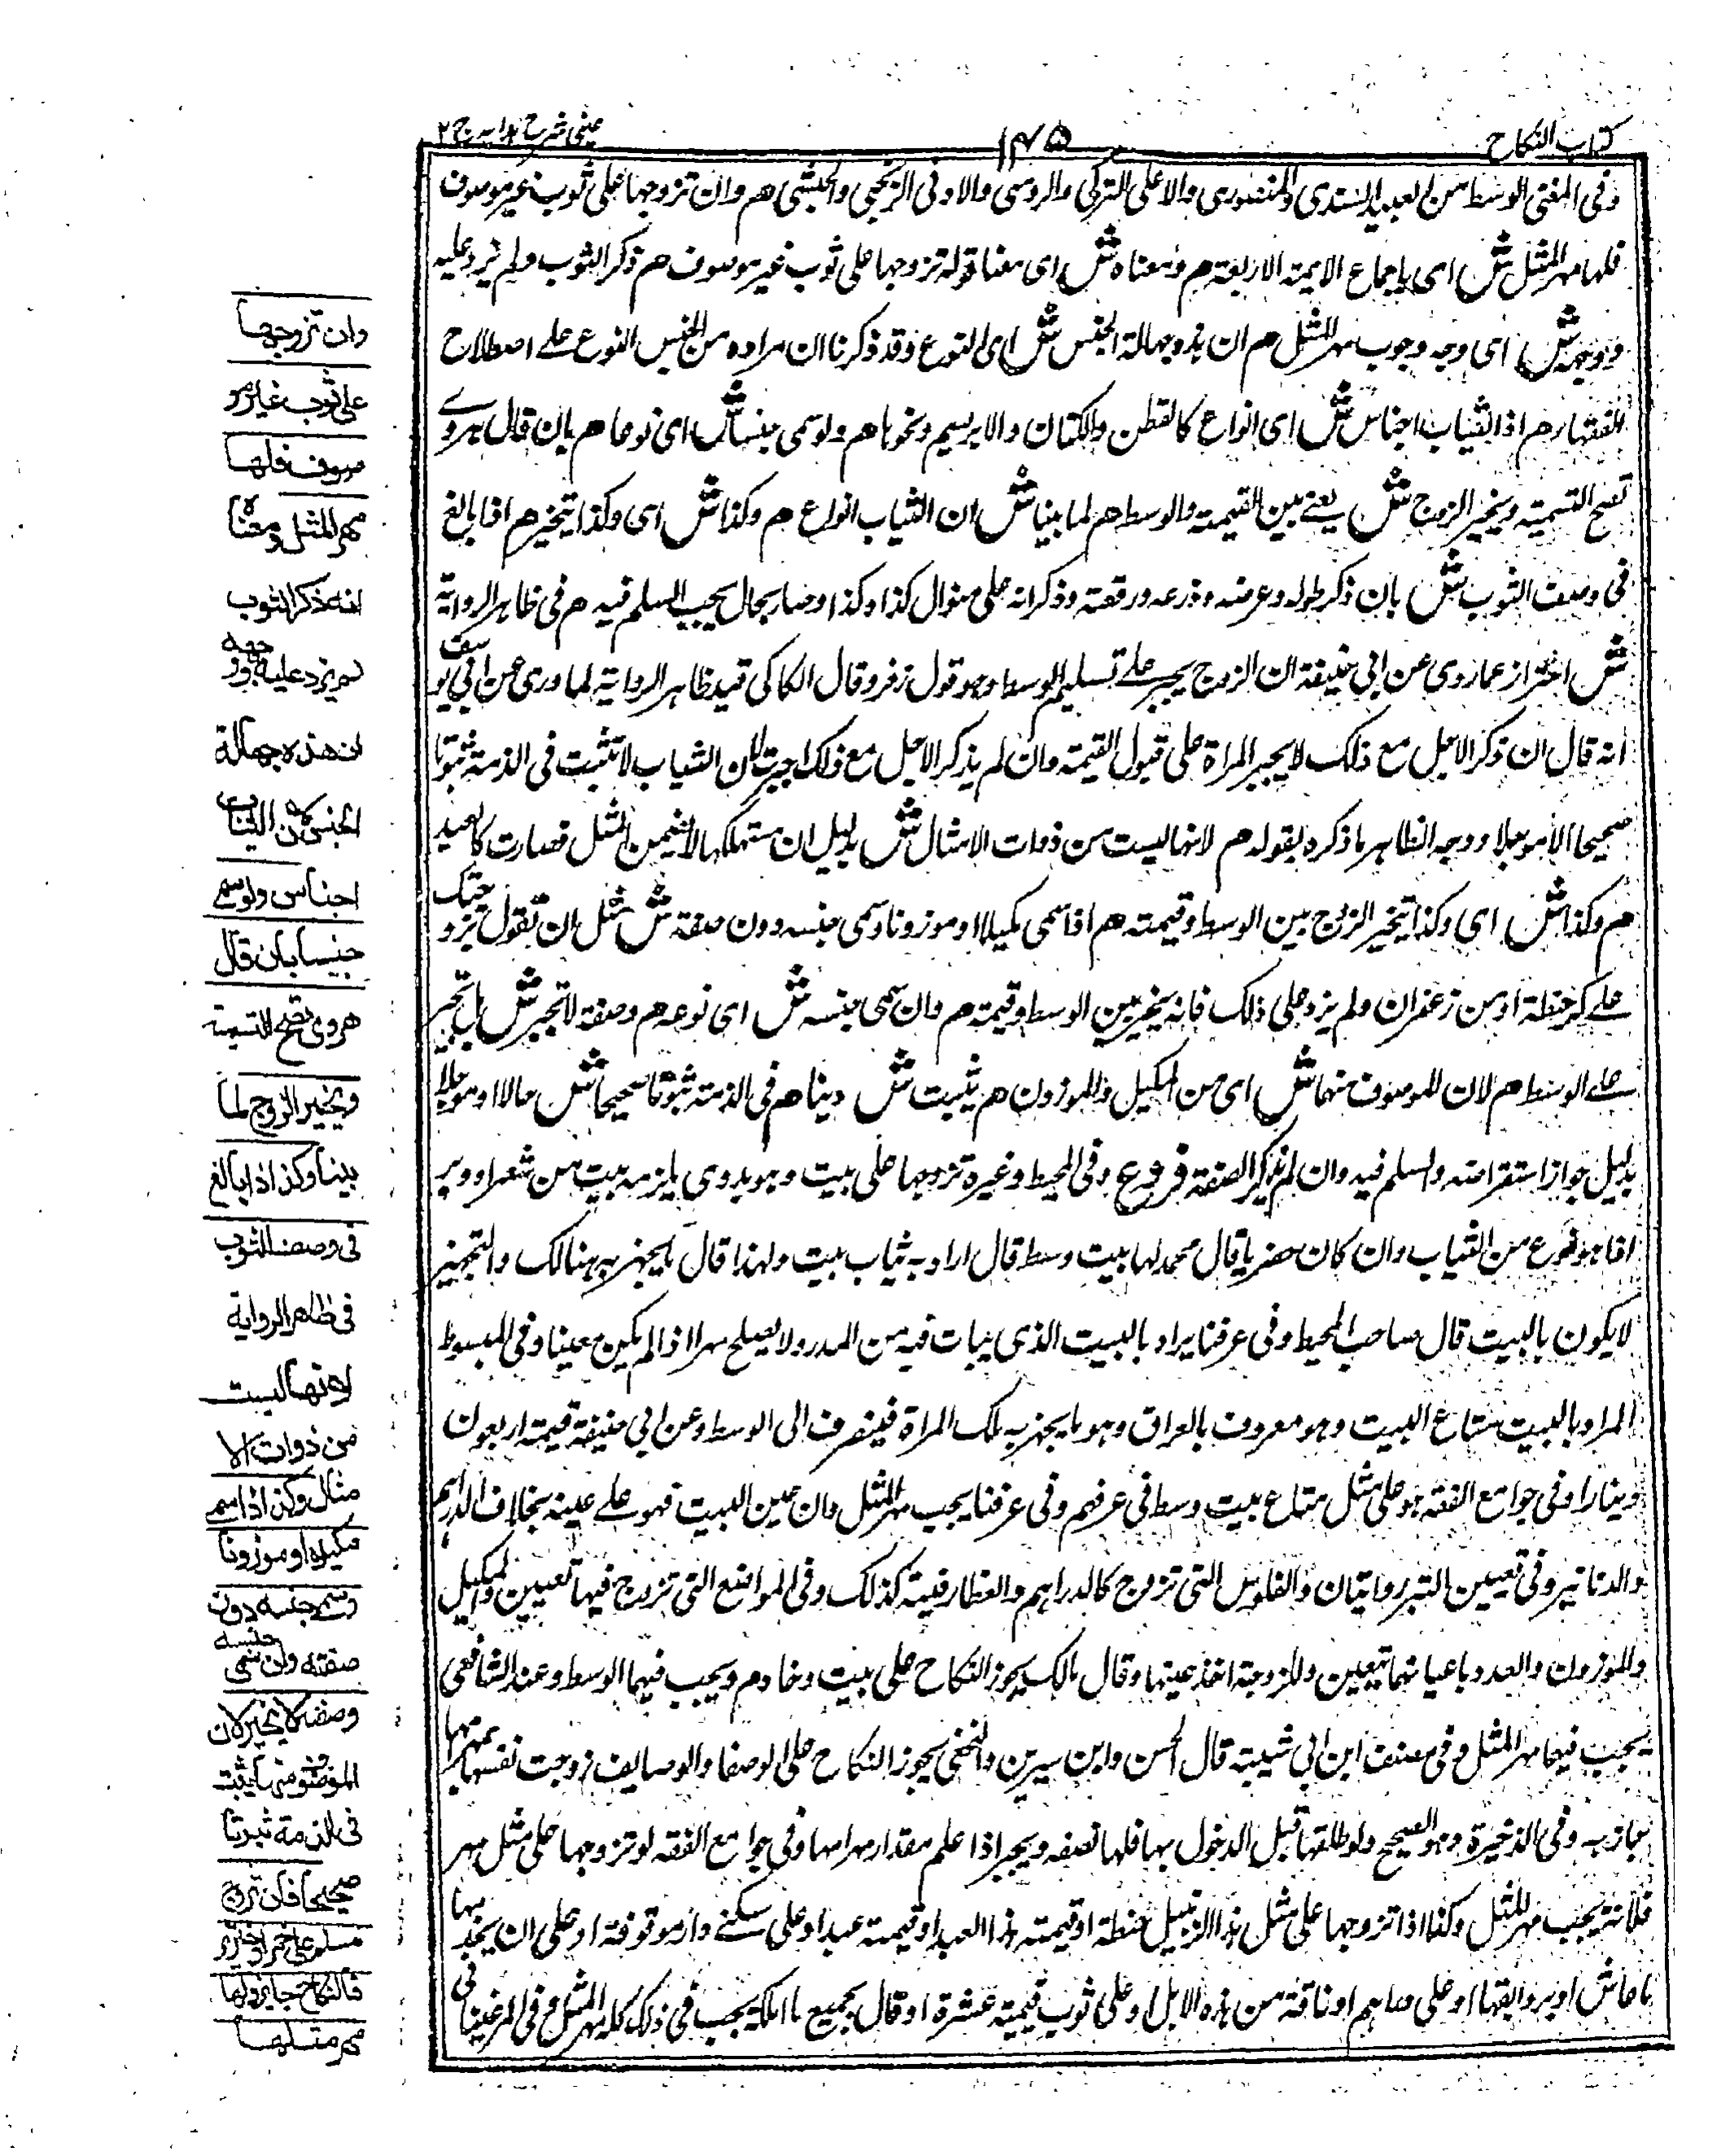 كتاب النكاح
١٤٥
عينى شرح هدايه ج ٢
وفى المغنى الوسط من العبيد السندى والمنصورى والاعلى التركى والرومى والادنى الزنجى والحبشى هم وان تزوجها على ثوب غير موصوف
فلها مهر المثل ش اى باجماع الايمة الاربعة م ومعناه ش اى معنا قوله تزوجها على ثوب غير موصوف هم ذكر الثوب ولم يزد عليه
ووجهه ش اى وجه وجوب مهر المثل هم ان هذه جهالة الجنس ش اى النوع وقد ذكرنا ان مراده من الجنس النوع على اصطلاح
الفقهاء هم اذ الثياب اجناس ش اى انواع كالقطن والكتان والابريسم ونحوها هم ولو سمى جنسا ش اى نوعا هم بان قال هروى
تصح التسمية ويخير الزوج ش يعنى بين القيمة والوسط هم لما بينا ش ان الثياب انواع هم وكذا ش اى وكذا يتخير هم اذا بالغ
فى وصف الثوب ش بان ذكر طوله وعرضه وذرعه ورقعته وذكر انه على منوال كذا وكذا وصار بحال يجب السلم فيه هم فى ظاهر الرواية
ش احترز عما روى عن ابى حنيفة ان الزوج يجبر على تسليم الوسط وهو قول زفر وقال الكاكى قيد ظاهر الرواية لما روى عن ابى يوسف
انه قال ان ذكر الاجل مع ذلك لا يجبر المراة على قبول القيمة وان لم يذكر الاجل مع ذلك اجبرت لان الثياب لا تثبت فى الذمة ثبوتا
صحيحا الا مؤجلا ووجه الظاهر ما ذكره بقوله هم لانها ليست من ذوات الامثال ش بدليل ان مستهلكها لا يضمن المثل فصارت كالعبيد
هم وكذا ش اى وكذا يتخير الزوج بين الوسط وقيمته هم اذا سمى مكيلا او موزونا وسمى جنسه دون صفته ش مثل ان تقول تزوجتك
على كر حنطة او من زعفران ولم يزد على ذلك فانه يخير بين الوسط وقيمته هم وان سمى جنسه ش اى نوعه هم وصفته لا تجبر ش بل تجبر
على الوسط هم لان الموصوف منهما ش اى من المكيل والموزون هم يثبت ش دينا هم فى الذمة ثبوتا صحيحا ش حالا او مؤجلا
بدليل جواز استقراضه والسلم فيه وان لم يذكر الصفة فروع وفى المحيط وغيره تزوجها على بيت وهو بدوى يلزمه بيت من شعر او وبر
اذا هو نوع من الثياب وان كان حضريا قال محمد لها بيت وسط قال اراد به ثياب بيت ولهذا قال ما يجهز به هنالك والتجهيز
لا يكون بالبيت قال صاحب المحيط وفى عرفنا يراد بالبيت الذى يبات فيه من المدر ولا يصلح مهرا اذا لم يكن معينا وفى المبسوط
المراد بالبيت متاع البيت وهو معروف بالعراق وهو ما يجهز به تلك المراة فينصرف الى الوسط وعن ابى حنيفة قيمته اربعون
دينارا وفى جوامع الفقه هو على مثل متاع بيت وسط فى عرفهم وفى عرفنا يجب مهر المثل وان عين البيت فهو على عينه بخلاف الدراهم
والدنانير وفى تعيين التبر روايتان والفلوس التى تروج كالدراهم والغطارفية كذلك وفى المواضع التى تروج فيها تعيين والمكيل
والموزون والعدد باعيانها يتعين وللزوجة اخذ عينها وقال مالك يجوز النكاح على بيت وخادم ويجب فيهما الوسط وعند الشافعى
يجب فيها مهر المثل وفى مصنف ابن ابى شيبة قال الحسن وابن سيرين والنخعى يجوز النكاح على الوصفاء والوصايف زوجت نفسها بمهر امها
جاز به وفى الذخيرة وهو الصحيح ولو طلقها قبل الدخول بها فلها نصفه ويجبر اذا علم مقدار مهر امها وفى جوامع الفقه لو تزوجها على مثل مهر
فلانة يجب مهر المثل وكذا اذا تزوجها على مثل هذا الزنبيل حنطة او قيمته هذا العبد او قيمته عبد او على سكنے دار موقوفة او على ان يخدمها
ما عاش او يروا بقها او على دراهم او ناقة من هذه الابل او على ثوب قيمته عشرة او قال بجميع ما املكه يجب فى ذلك كله مهر المثل وفى المرغينانى
وان تزوجها
على ثوب غير مو
صوف فلها
مهر المثل ومعناه
انه ذكر الثوب
لم يزد عليه ووجهه
ان هذه جهالة
الجنس لان الثياب
اجناس ولو سمى
جنسا بان قال
هروى تصح التسمية
ويخير الزوج لما
بينا وكذا اذا بالغ
فى وصف الثوب
فى ظاهر الرواية
لانها ليست
من ذوات الا
مثال وكذا اذا سمى
مكيلا او موزونا
وسمى جنسه دون
صفته وان سمى جنسه
وصفته لا يخير لان
الموصوف منهما يثبت
فى الذمة ثبوتا
صحيحا فان تزوج
مسلم على خمر او خنزير
فالنكاح جايز ولها
مهر مثلها